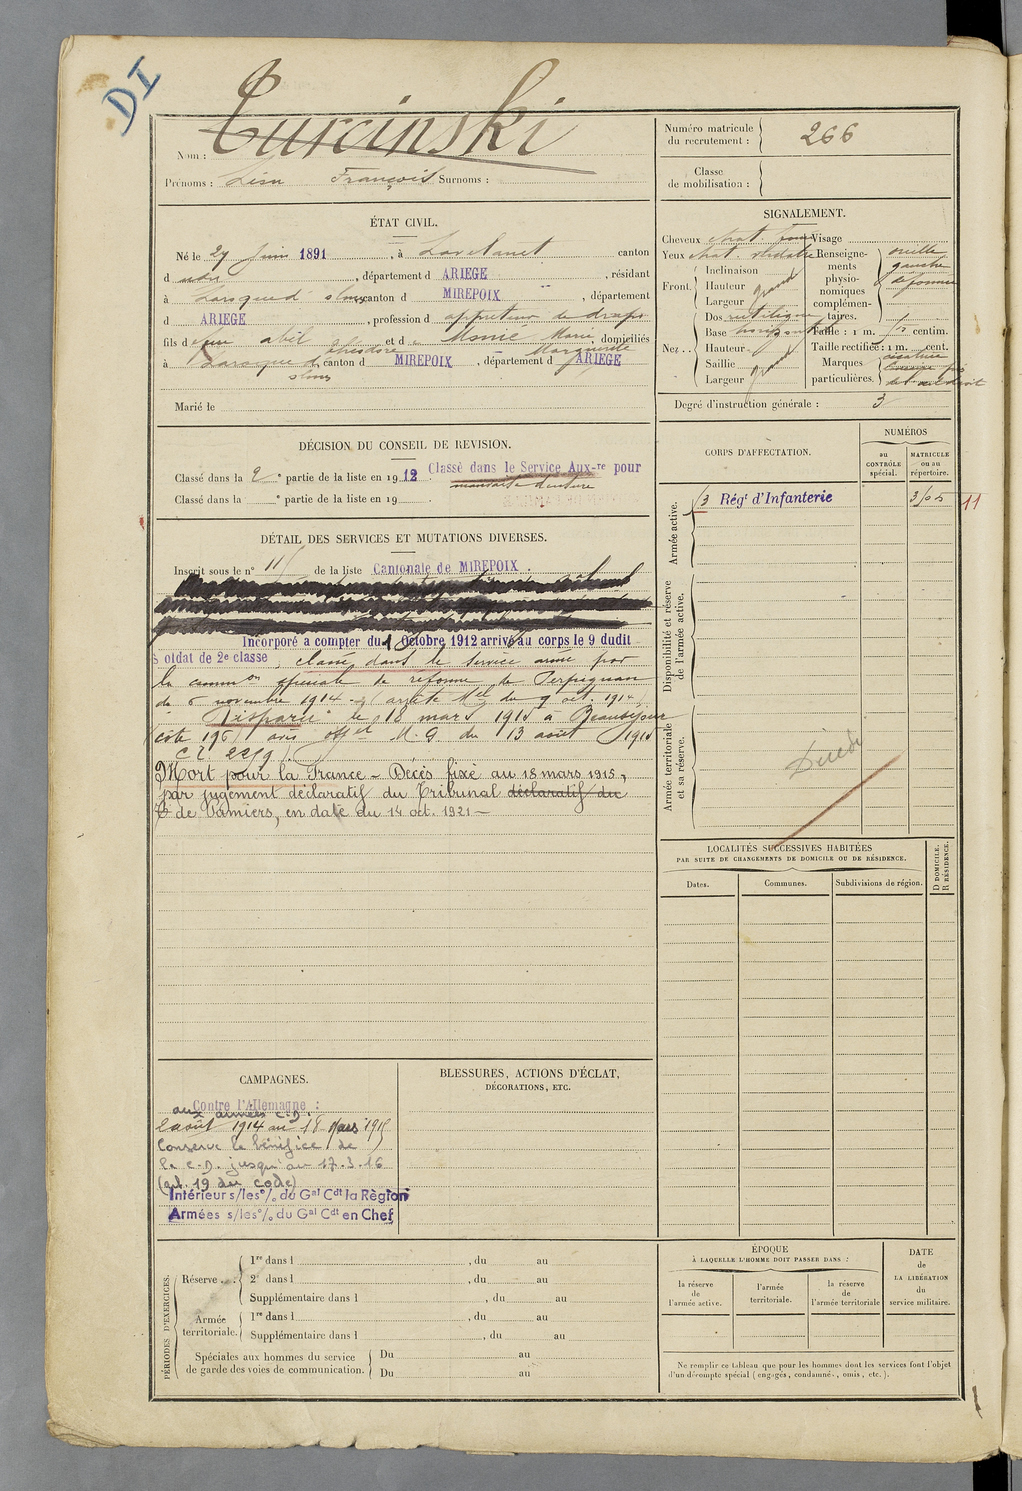 DI
Nom : Turcinski
Prénoms : Léon François Surnoms :
Numéro matricule du recrutement : 266
Classe de mobilisation :
ÉTAT CIVIL.
Né le 27 Juin 1891, à Lavelanet canton
d udu, département d ARIEGE, résidant
à Laroque d'olmes, canton d MIREPOIX, département
d ARIEGE, profession d appreteur de draps
fils d feu abel théodore et d Monié Marie Marguerite, domiciliés
à Laroque d'olmes, canton d MIREPOIX, département d ARIEGE
Marié le
SIGNALEMENT.
Cheveux chat
Yeux chat.
Front. Inclinaison
Hauteur grand
Largeur
Nez.. Dos rectiligne
Base horizont
Hauteur
Saillie
Largeur grand
Visage
Renseignements physionomiques complémentaires. oreille gauche déformée
Taille : 1 m. centim.
Taille rectifiée : 1 m. cent.
Marques particulières. cicatrice
Degré d'instruction générale : 3
DÉCISION DU CONSEIL DE REVISION.
Classé dans la 2e partie de la liste en 1912. Classé dans le Service Aux-re pour
mauvaise denture
Classé dans la e partie de la liste en 19
DÉTAIL DES SERVICES ET MUTATIONS DIVERSES.
Inscrit sous le n° 11 de la liste Cantonale de MIREPOIX.
Incorporé a compter du 1 Octobre 1912 arrivé au corps le 9 dudit
Soldat de 2e classe, classé dans le service armé par
la common spéciale de réforme de Perpignan
du 6 novembre 1914. (arrêté Mel du 9 oct. 1914)
Disparu le 18 mars 1915 à Beauséjour
(côte 196) avis offel M.G du 13 août 1915
Mort pour la France – Décès fixé au 18 mars 1915,
par jugement déclaratif du Tribunal déclaratif du
T de Pamiers, en date du 14 oct. 1921 –
CORPS D'AFFECTATION.
NUMÉROS
au CONTRÔLE spécial.
MATRICULE ou au répertoire.
Armée active.
Régt d'Infanterie
11
Disponibilité et réserve de l'armée active.
Armée territoriale et sa réserve.
Décédé
LOCALITÉS SUCCESSIVES HABITÉES
PAR SUITE DE CHANGEMENTS DE DOMICILE OU DE RÉSIDENCE.
Dates.
Communes.
Subdivisions de région.
D DOMICILE.
R RÉSIDENCE.
CAMPAGNES.
Contre l'Allemagne :
aux armées C.D.
2 août 1914 au 18 Mars 1915
Conserve le bénéfice de
la C.D. jusqu'au 17.3.16
(art. 19 du code)
Intérieur s/les % du Gal Cdt la Région
Armées s/les % du Gal Cdt en Chef
BLESSURES, ACTIONS D'ÉCLAT,
DÉCORATIONS, ETC.
PÉRIODES D'EXERCICES.
Réserve...
1re dans l , du au
2e dans l , du au
Supplémentaire dans l , du au
Armée territoriale.
1re dans l , du au
Supplémentaire dans l , du au
Spéciales aux hommes du service de garde des voies de communication.
Du au
Du au
ÉPOQUE
À LAQUELLE L'HOMME DOIT PASSER DANS :
la réserve de l'armée active.
l'armée territoriale.
la réserve de l'armée territoriale
DATE de LA LIBÉRATION du service militaire.
Ne remplir ce tableau que pour les hommes dont les services font l'objet
d'un décompte spécial (engagés, condamnés, omis, etc.).